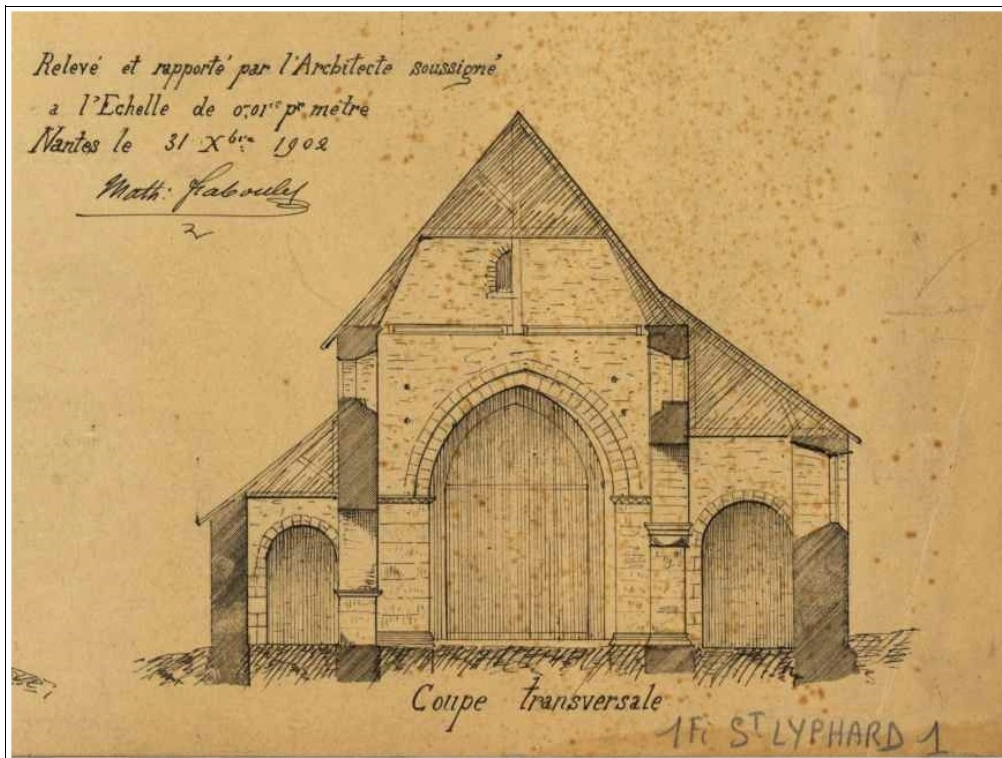 Relevé et rapporté par l'Architecte soussigné
a l'Echelle de 0,01ᶜ pʳ metre
Nantes le 31 Xbre 1902
Math:
Coupe transversale
1Fi Sᵀ LYPHARD 1